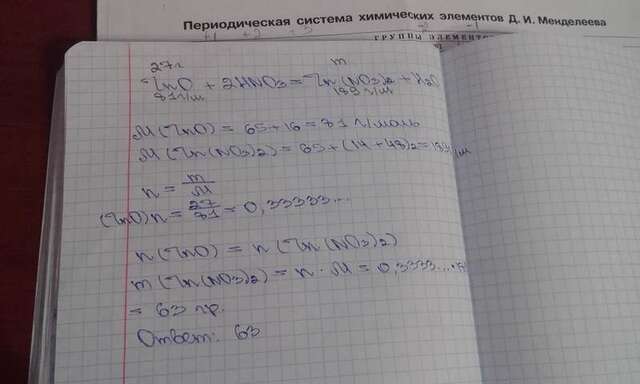 Периодическая система химических элементов Д. И. Менделеева
ГРУППЫ ЭЛЕМЕНТОВ
27г m
ZnO + 2HNO3 = Zn(NO3)2 + H2O
81 г/м 189 г/м
M(ZnO) = 65+16 = 81 г/моль
M(Zn(NO3)2) = 65+(14+48)2=189 г/м
n = m/M
(ZnO)n = 27/81 = 0,33333...
n(ZnO) = n(Zn(NO3)2)
m(Zn(NO3)2) = n · M = 0,3333...
= 63 гр.
Ответ: 63